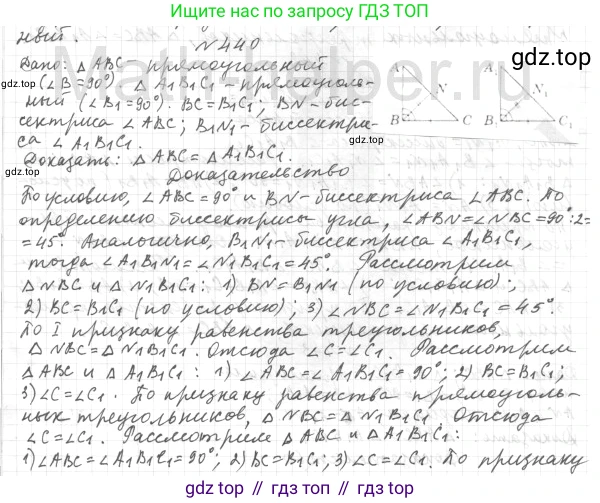 Ищите нас по запросу ГДЗ ТОП
ний.
№440
gdz.top
Дано: △ ABC - прямоугольный
(∠B=90°) △ A1B1C1 - прямоуголь-
ный (∠B1=90°). BC=B1C1; BN-бис-
сектриса ∠ABC; B1N1-биссектри-
са ∠A1B1C1.
A N B C A1 N1 B1 C1
Доказать: △ABC=△A1B1C1.
gdz.top
Доказательство
По условию, ∠ABC=90° и BN-биссектриса ∠ABC. По
определению биссектрисы угла, ∠ABN=∠NBC=90°:2=
=45°. Аналогично, B1N1-биссектриса ∠A1B1C1,
тогда ∠A1B1N1=∠N1B1C1=45°. Рассмотрим
△NBC и △N1B1C1: 1) BN=B1N1 (по условию);
2) BC=B1C1 (по условию); 3) ∠NBC=∠N1B1C1=45°.
По I признаку равенства треугольников,
△NBC=△N1B1C1. Отсюда ∠C=∠C1. Рассмотрим
△ABC и △A1B1C1: 1) ∠ABC=∠A1B1C1=90°; 2) BC=B1C1;
3) ∠C=∠C1. По признаку равенства прямоуголь-
ных треугольников, △NBC=△N1B1C1. Отсюда
∠C=∠C1. Рассмотрим △ABC и △A1B1C1:
1) ∠ABC=∠A1B1C1=90°; 2) BC=B1C1; 3) ∠C=∠C1. По признаку
gdz.top // гдз.топ // gdz.top